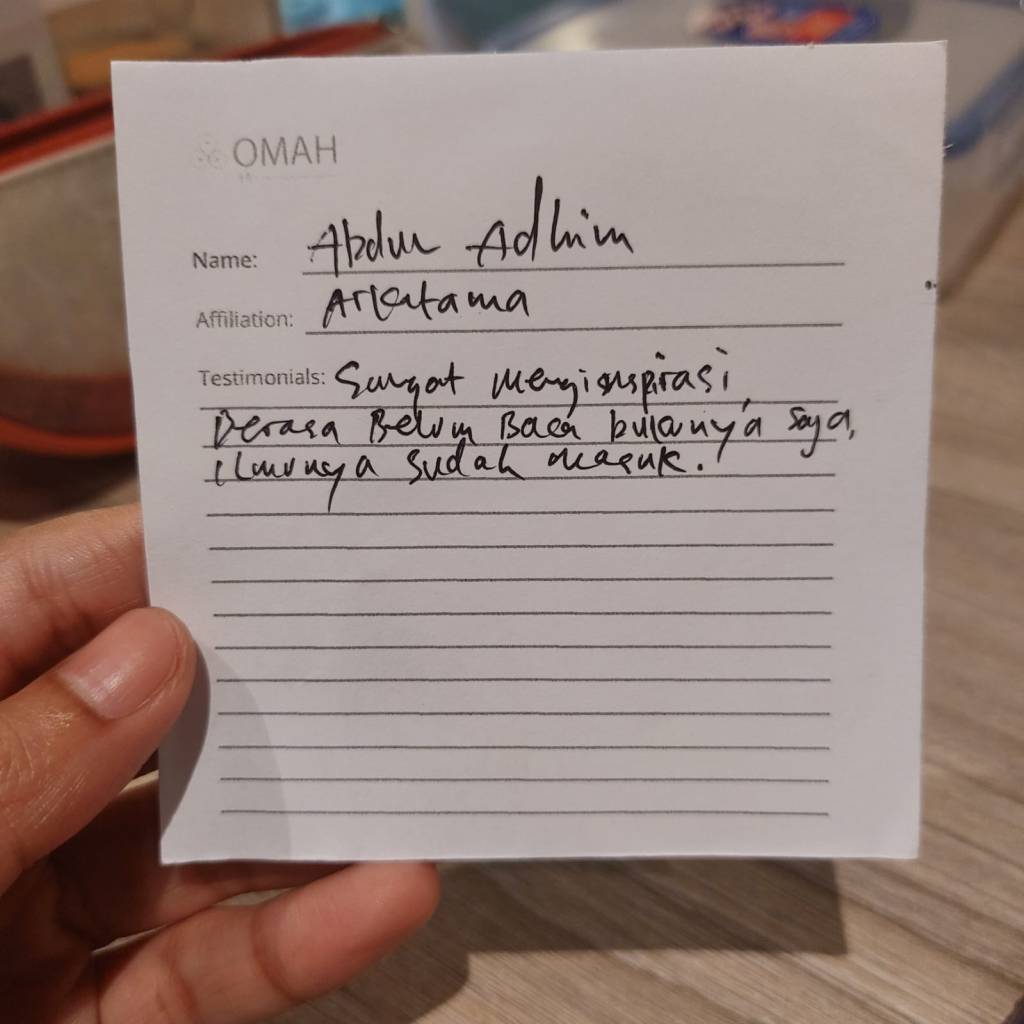 OMAH
Name: Abdul Adhim
Affiliation: Arkatama
Testimonials: Sangat Menginspirasi,
Berasa Belum Baca bukunya Saya,
ilmunya sudah masuk.